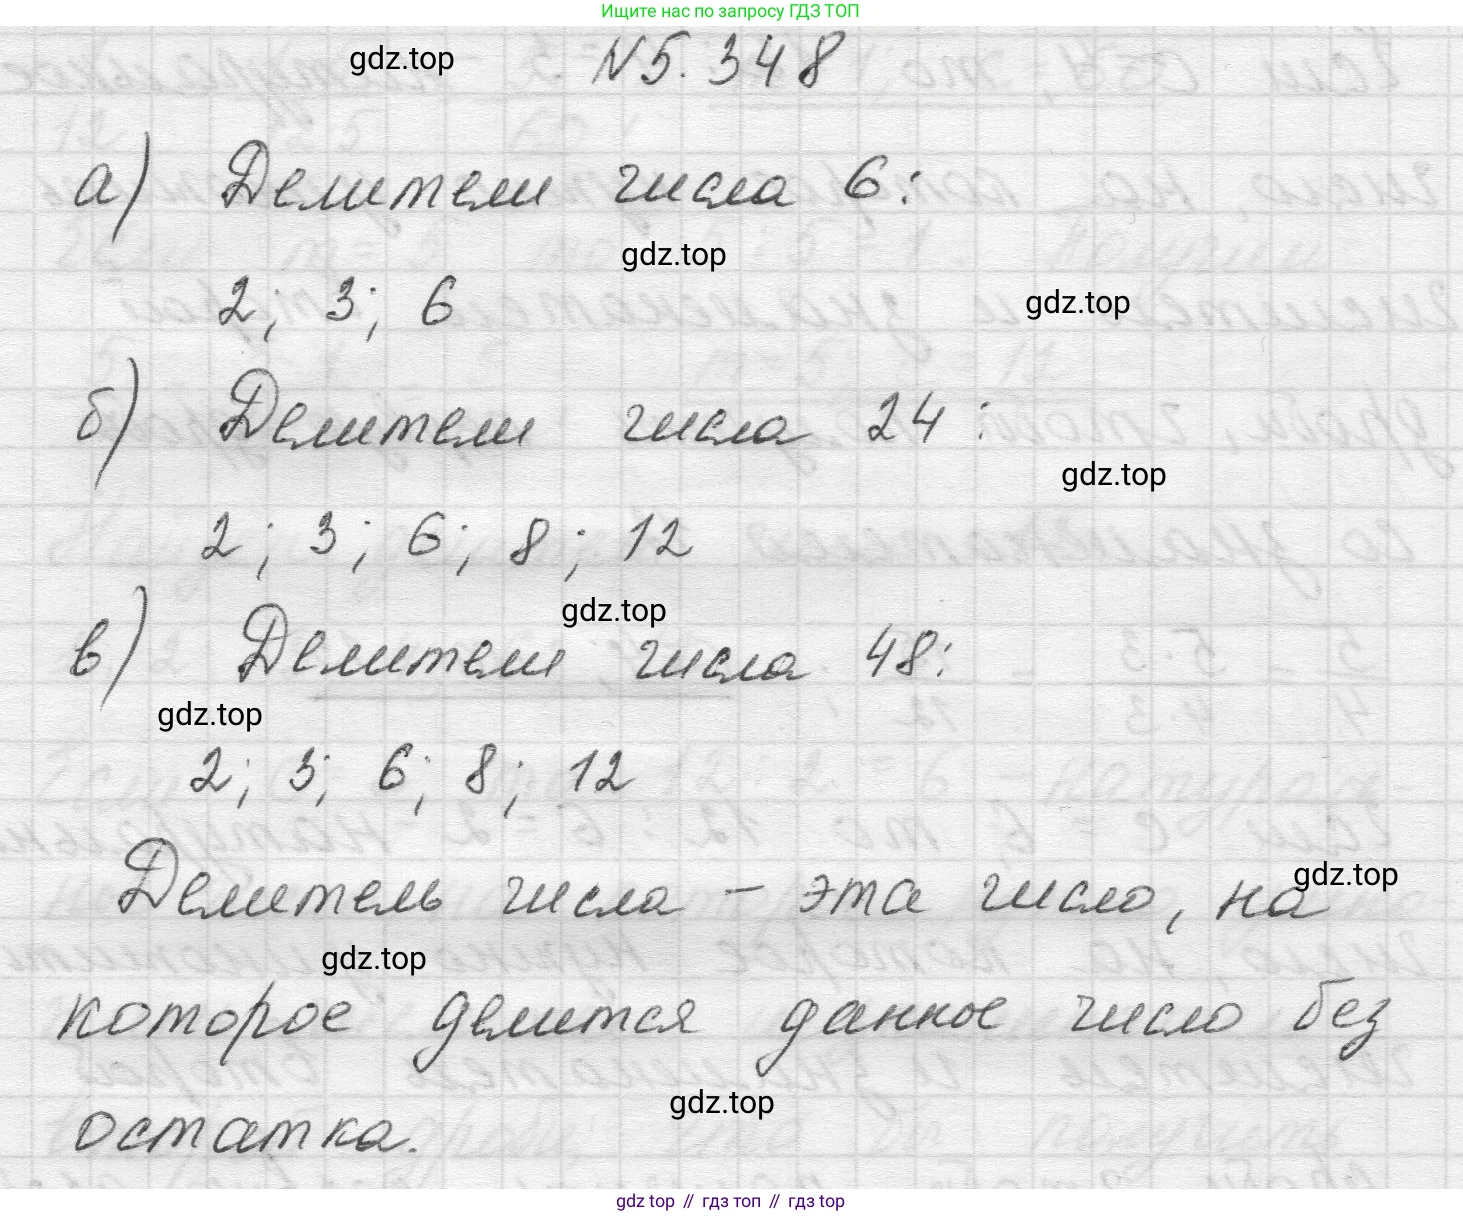 Ищите нас по запросу ГДЗ ТОП
gdz.top
N5.348
а) Делители числа 6:
gdz.top
2; 3; 6
gdz.top
б) Делители числа 24:
gdz.top
2; 3; 6; 8; 12
gdz.top
в) Делители числа 48:
gdz.top
2; 3; 6; 8; 12
gdz.top
Делитель числа – эта число, на
gdz.top
которое делится данное число без
gdz.top
остатка.
gdz top // гдз топ // гдз top